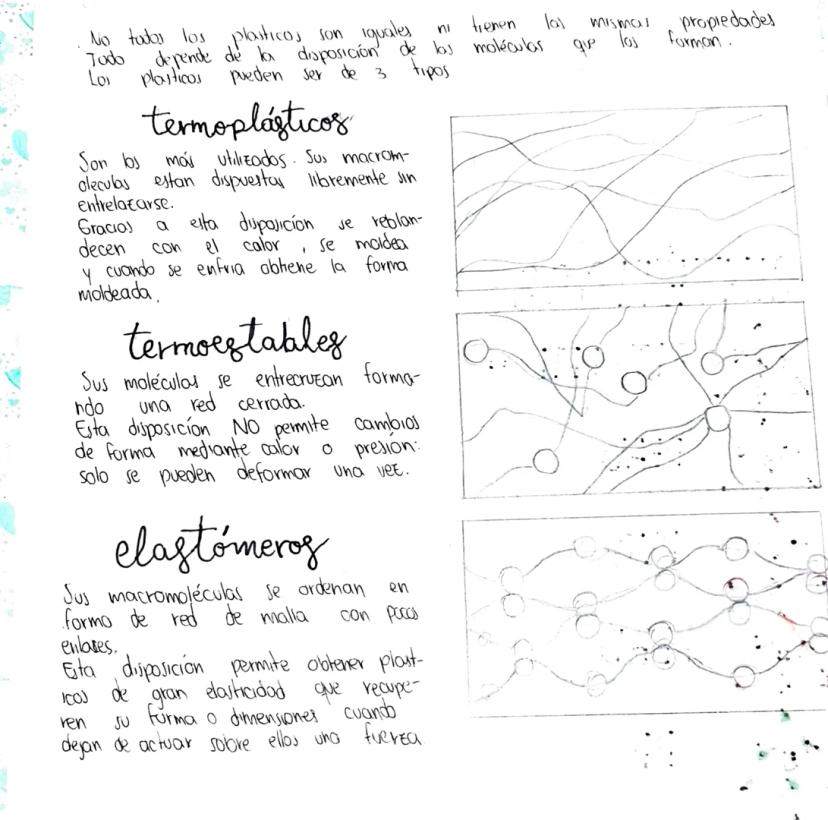 No todos los plasticos son iguales ni tienen las mismas propiedades
Todo depende de la disposición de las moléculas que los forman.
Los plasticos pueden ser de 3 tipos
termoplásticos
Son los más utilizados. Sus macrom-
oleculas estan dispuestas libremente sin
entrelazarse.
Gracias a esta disposición se reblan-
decen con el calor, se moldea
y cuando se enfria obtiene la forma
moldeada.
termoestables
Sus moléculas se entrecruzan forma-
ndo una red cerrada.
Esta disposición NO permite cambios
de forma mediante calor o presión:
solo se pueden deformar una vez.
elastómeros
Sus macromoléculas se ordenan en
forma de red de malla con pocos
enlaces.
Esta disposición permite obtener plast-
icos de gran elasticidad que recupe-
ren su forma o dimensiones cuando
dejan de actuar sobre ellos una fuerza